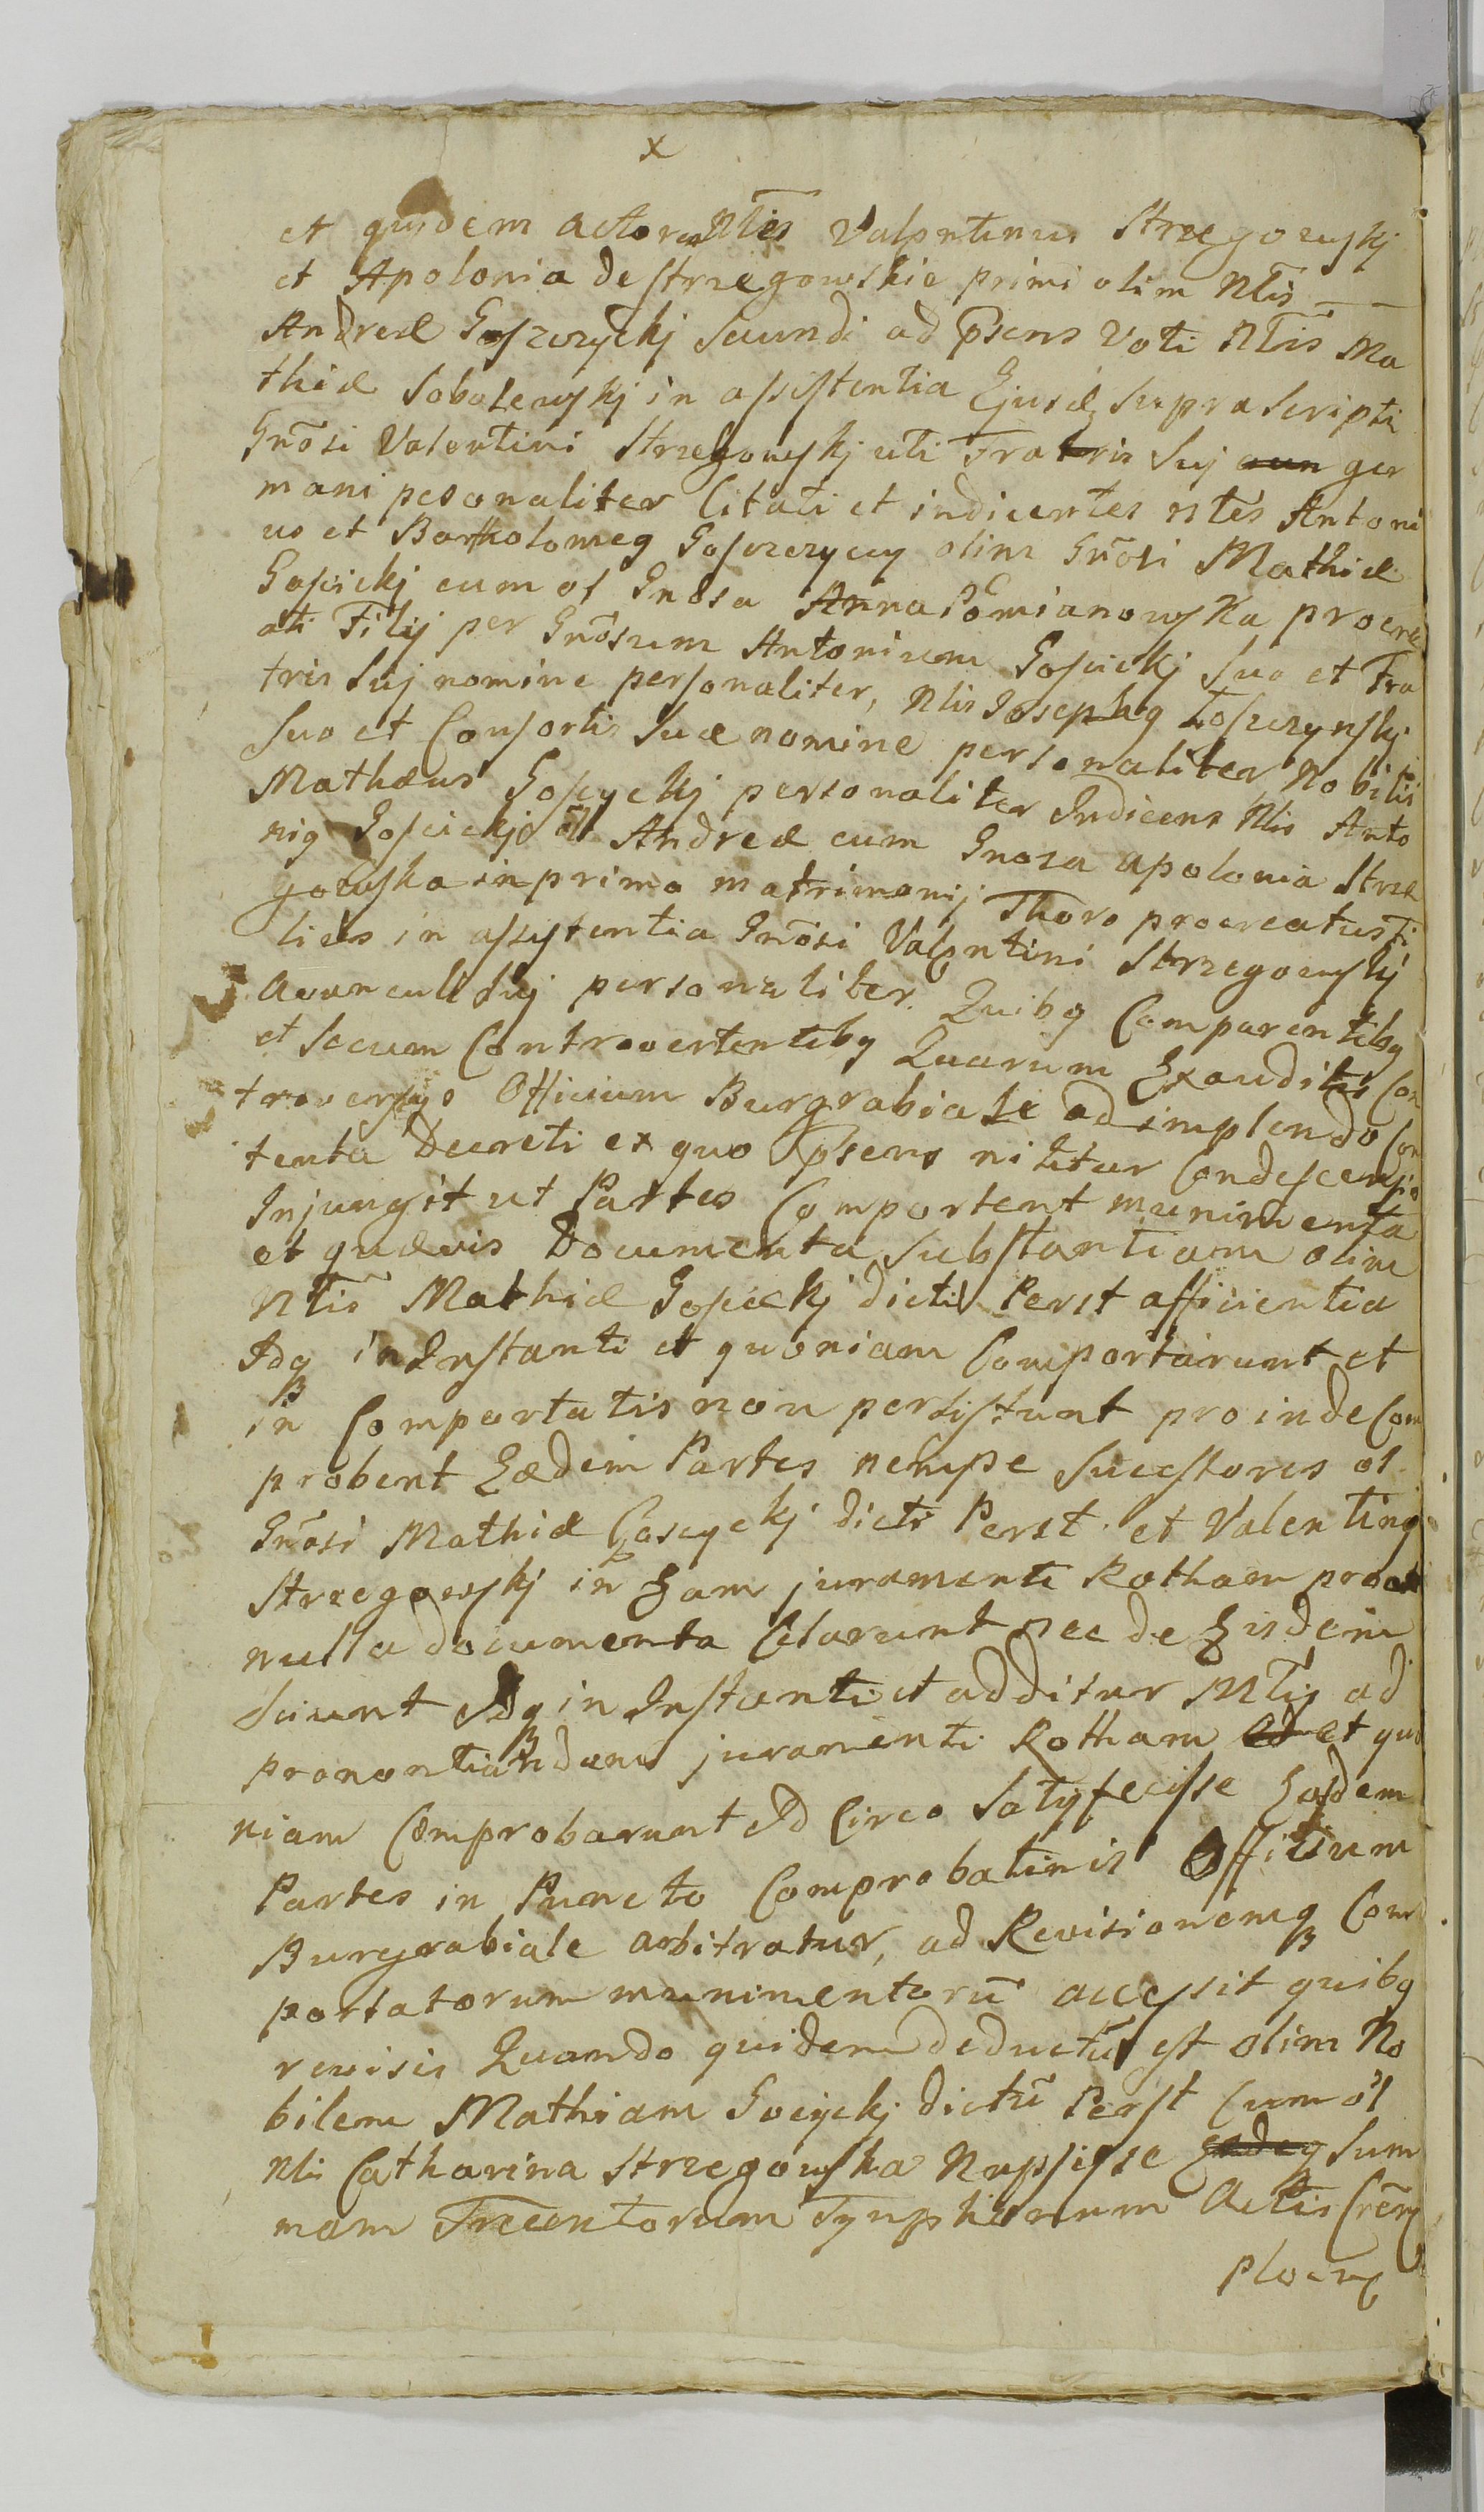 x
et quidem actores Nles Valentinus Strzegowskj
et Apolonia de Strzegowskie primi olim Nlis
Andreæ Goszczyckj Secundi ad psens Voti Nlis Ma
thiæ Sobolewskj in assistentia Ejusd Suprascripti
Gnosi Valentini Strzegowskj uti Fratris Suj ger
mani pesonaliter Citati et indicentes Nles Antoni
us et Bartholomeg Goszczyccy olim Gnosi Mathiæ
Goscickj cum ol Gnosa Anna Pomianowska procre
ati Filij per Gnosum Antonium Goscickj Suo et Fra
tris Suj nomine personaliter, Nlis Josephg Łoszczynskj
Suo et Consortis Suæ nomine personaliter Nobilis
Mathæus Goscyckj personaliter Indicens Nlis Anto
nig Goscickj ol Andreæ cum Gnosa Apolonia Strze
gowska in primo matrimonij Thoro procreatus Fi
lius in assystentia Gnosi Valentini Strzegowskj
Avunculi Suj personaliter. Quibg Comparentibg
et Secum Controvertentibg Quarum Exauditis Con
troversijs Officium Burgrabiale ad implendo Con
tenta Decreti ex quo psens nititur Condescensio
Injungit ut Partes Comportent munimenta
et quævis Documenta Substantiam olim
Nlis Mathiæ Gosickj dicti Perst afficientia
Idq in Instanti et quoniam Comportarunt et
in Comportatis non persistunt proinde Com
probent Eædem Partes nempe Successores ol
Gnosi Mathiæ Goscyckj dicti Perszt. et Valenting
Strzegowskj in Eam juramenti Rotham
nulla documenta Celarunt nec de Eisdem
Sciunt Idq in Instanti et additur Mtij ad
pronontiandam juramenti Rotham et quo
niam Comprobarunt Id Circo Satysfecisse Easdem
Partes in Puncto Comprobationis Officium
Burgrabiale arbitratur, ad Revisionemq Com
portatorum munimentoru accessit quibg
revisis Quando quidem deductu est olim No
bilem Mathiam Gocyckj dictu Perszt Cum ol
Nli Catharina Strzegowska Nupsisse Sum
mam Trecentorum Tynphonum Actis Crem
Plocen